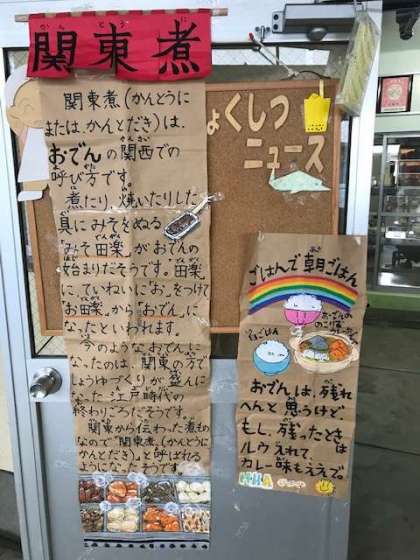 かんとうに
関東煮
関東煮(かんとうに
または、かんとだき)は、
かんさい
おでんの関西での
呼び方です。
煮たり、焼いたりした
具にみそをぬる
でんがく
「みそ田楽」がおでんの
始まりだそうです。田楽
に、ていねいに「お」をつけて
「お田楽」から「おでん」に
なったといわれます。
今のようなおでんに
なったのは、関東の方で
しょうゆづくりが盛んに
なった江戸時代の
終わりごろだそうです。
関東から伝わった煮もの
なので「関東煮」(かんとうに
かんとだき)と呼ばれる
ようになったそうです。
ょくしつ
ニュース
ごはんで朝ごはん
あさ
白ごはん
おでんの
のこりを
おでんは、残れ
へんと思うけど
もし、残ったときは
ルウえれて、
カレー味もええで。